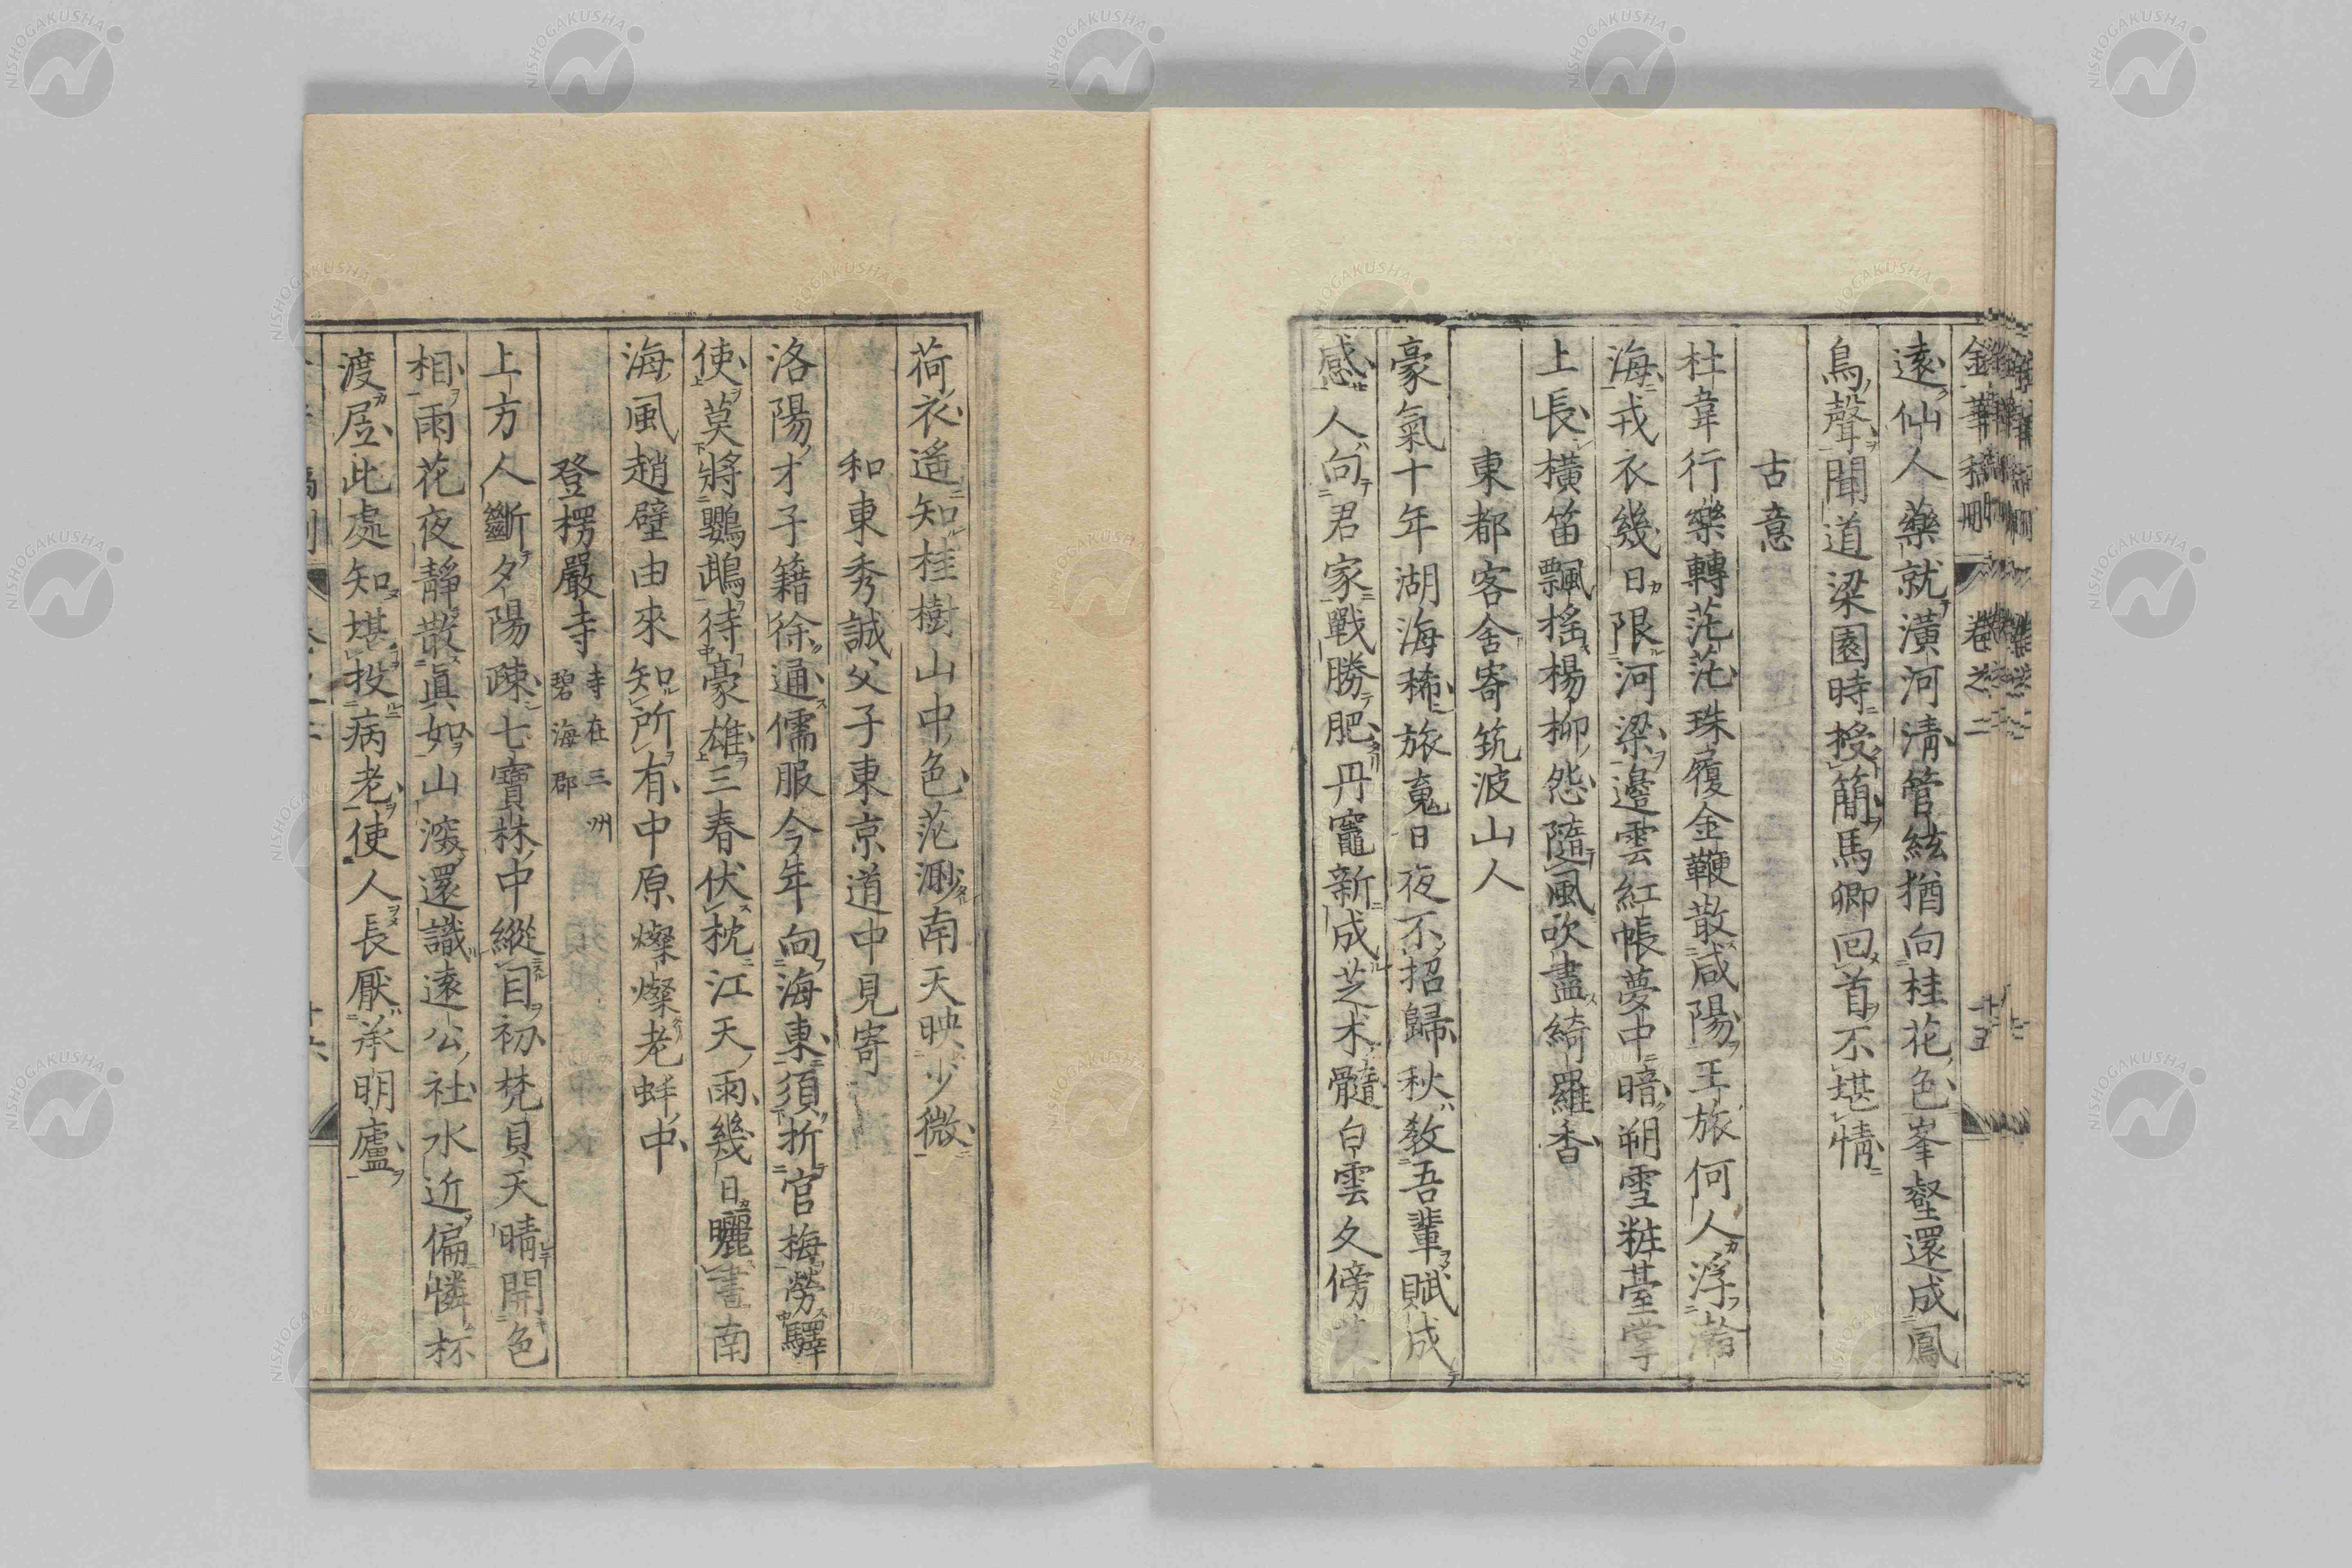 金華稿刪 卷之二 十五
遠仙人藥就潢河清管絃猶向桂花色峯壑還成鳳
鳥聲聞道梁園時授簡馬卿回首不堪情
古意
杜韋行樂轉茫茫珠履金鞭散咸陽王旅何人浮瀚
海戎衣幾日限河梁邊雲紅帳夢中暗朔雪粧臺掌
上長橫笛飄搖楊柳怨隨風吹盡綺羅香
東都客舍寄筑波山人
豪氣十年湖海稀旅䰟日夜不招歸秋教吾輩賦成
感人向君家戰勝肥丹竈新成芝朮髓白雲久傍
荷衣遥知桂樹山中色茫渺南天映少微
和東秀誠父子東京道中見寄
洛陽才子籍徐通儒服今年向海東須折官梅勞驛
使莫將鸚鵡待豪雄三春伏枕江天雨幾日曬書南
海風趙璧由來知所有中原燦燦老蚌中
登楞嚴寺 寺在三州碧海郡
上方人斷夕陽疎七寶林中縱目初梵貝天晴開色
相雨花夜靜散眞如山深還識遠公社水近偏憐杯
渡居此處知堪投病老使人長厭承明廬